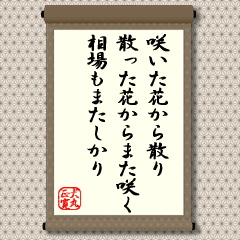 咲いた花から散り
散った花からまた咲く
相場もまたしかり